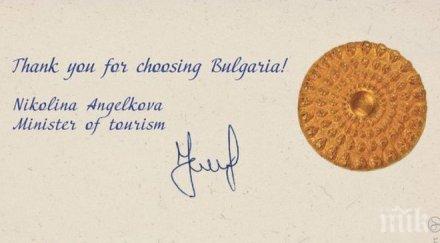 Thank you for choosing Bulgaria!
Nikolina Angelkova
Minister of tourism